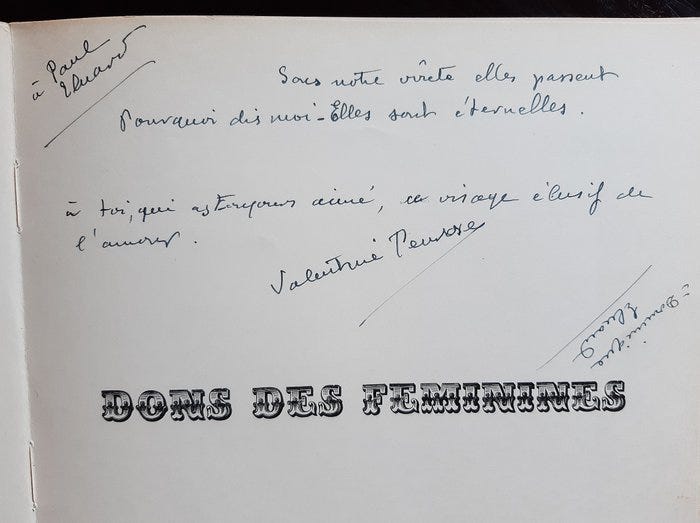 à Paul
Eluard
Sous notre elles passent
Pourquoi dis moi - Elles sont éternelles.
à toi, qui as toujours aimé, ce visage élusif de
l'amour.
Valentine Penrose
à Dominique
Eluard
DONS DES FEMININES